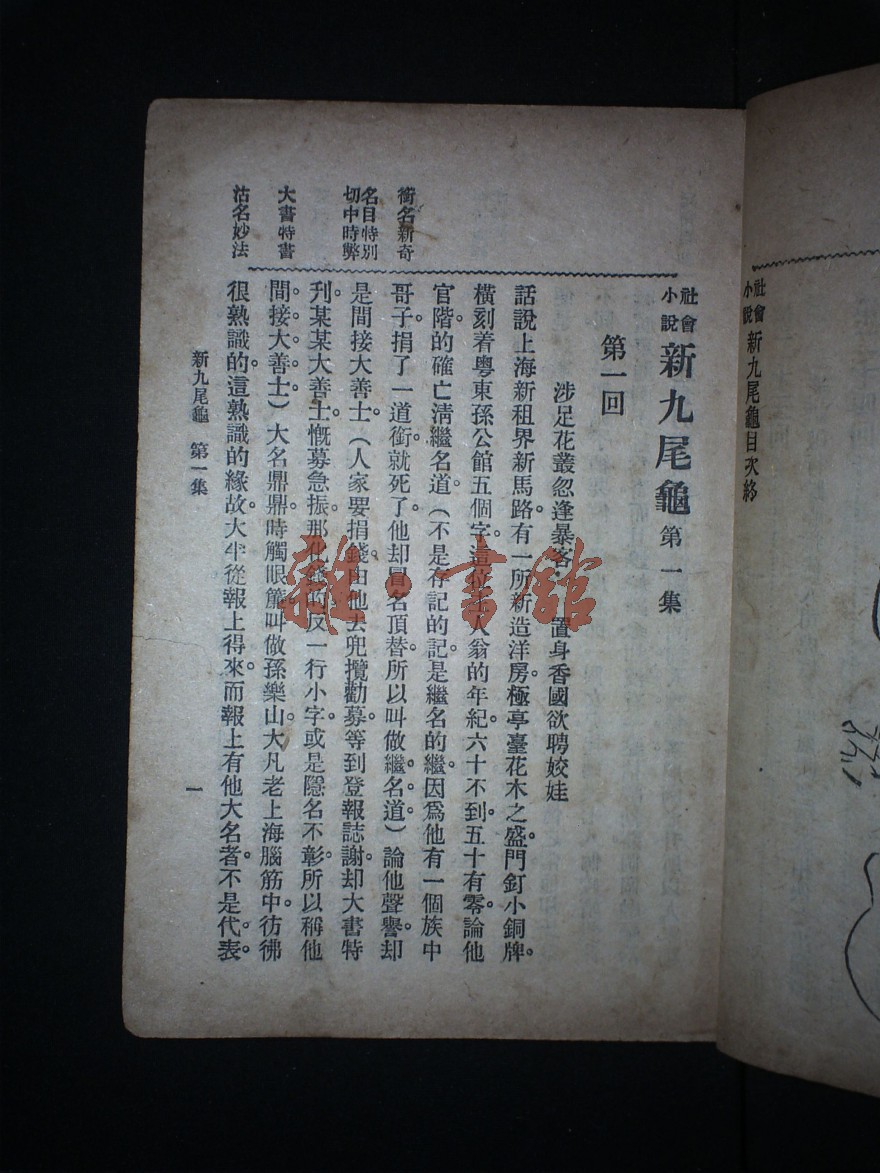 社會小說 新九尾龜目次終
社會小說 新九尾龜 第一集
第一回
涉足花叢忽逢暴客 置身香國欲聘姣娃
話說上海新租界新馬路。有一所新造洋房。極亭臺花木之盛。門釘小銅牌。
橫刻着粵東孫公館五個字。這位主人翁的年紀。六十不到。五十有零。論他
官階的確亡淸繼名道。(不是存記的記。是繼名的繼。因爲他有一個族中
哥子。捐了一道銜。就死了。他却冒名頂替。所以叫做繼名道。)論他聲譽。却
是間接大善士。(人家要捐錢。由他去兜攬勸募。等到登報誌謝。却大書特
刋。某某大善士。慨募急振。那化錢的反一行小字。或是隱名不彰。所以稱他
間接大善士。)大名鼎鼎。時觸眼簾。叫做孫樂山。大凡老上海腦筋中。彷彿
很熟識的。這熟識的緣故。大半從報上得來。而報上有他大名者。不是代表。
銜名新奇
名目特別
切中時弊
大書特書
沽名妙法
新九尾龜 第一集
一
雜·書館